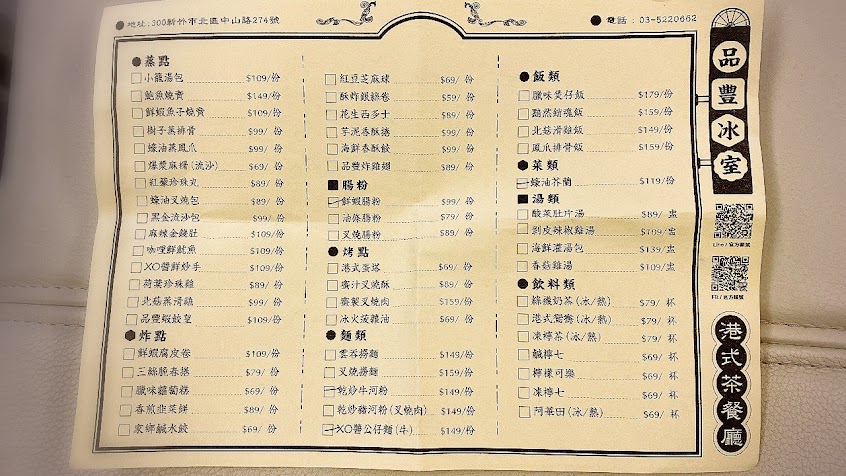 地址:300新竹市北區中山路274號
電話:03-5220662
蒸點
小籠湯包 $109/份
鮑魚燒賣 $149/份
鮮蝦魚子燒賣 $109/份
樹子蒸排骨 $99/份
蠔油蒸鳳爪 $99/份
爆漿麻糬(流沙) $69/份
紅藜珍珠丸 $89/份
蠔油叉燒包 $89/份
黑金流沙包 $99/份
麻辣金錢肚 $109/份
咖哩鮮魷魚 $109/份
XO醬鮮炒手 $109/份
荷葉珍珠雞 $89/份
北菇蒸滑雞 $99/份
品豐蝦餃皇 $109/份
炸點
鮮蝦腐皮卷 $109/份
三絲脆春捲 $79/份
臘味蘿蔔糕 $69/份
香煎韭菜餅 $89/份
家鄉鹹水餃 $69/份
紅豆芝麻球 $69/份
酥炸銀絲卷 $59/份
花生西多士 $89/份
芋泥香酥捲 $99/份
海鮮香酥餃 $99/份
品豐炸雞翅 $89/份
腸粉
鮮蝦腸粉 $99/份
油條腸粉 $79/份
叉燒腸粉 $89/份
烤點
港式蛋塔 $69/份
蜜汁叉燒酥 $89/份
蜜製叉燒肉 $159/份
冰火菠蘿油 $69/份
麵類
雲吞撈麵 $149/份
叉燒撈麵 $159/份
乾炒牛河粉 $149/份
乾炒豬河粉(叉燒肉) $149/份
XO醬公仔麵(牛) $149/份
飯類
臘味煲仔飯 $179/份
黯然銷魂飯 $159/份
北菇滑雞飯 $149/份
鳳爪排骨飯 $159/份
菜類
蠔油芥蘭 $119/份
湯類
酸菜肚片湯 $89/盅
剝皮辣椒雞湯 $109/盅
海鮮灌湯包 $139/盅
香菇雞湯 $109/盅
飲料類
絲襪奶茶(冰/熱) $79/杯
港式鴛鴦(冰/熱) $79/杯
凍檸茶(冰/熱) $79/杯
鹹檸七 $69/杯
檸檬可樂 $69/杯
凍檸七 $69/杯
阿華田(冰/熱) $69/杯
品豐冰室
Line/官方帳號
FB/官方帳號
港式茶餐廳